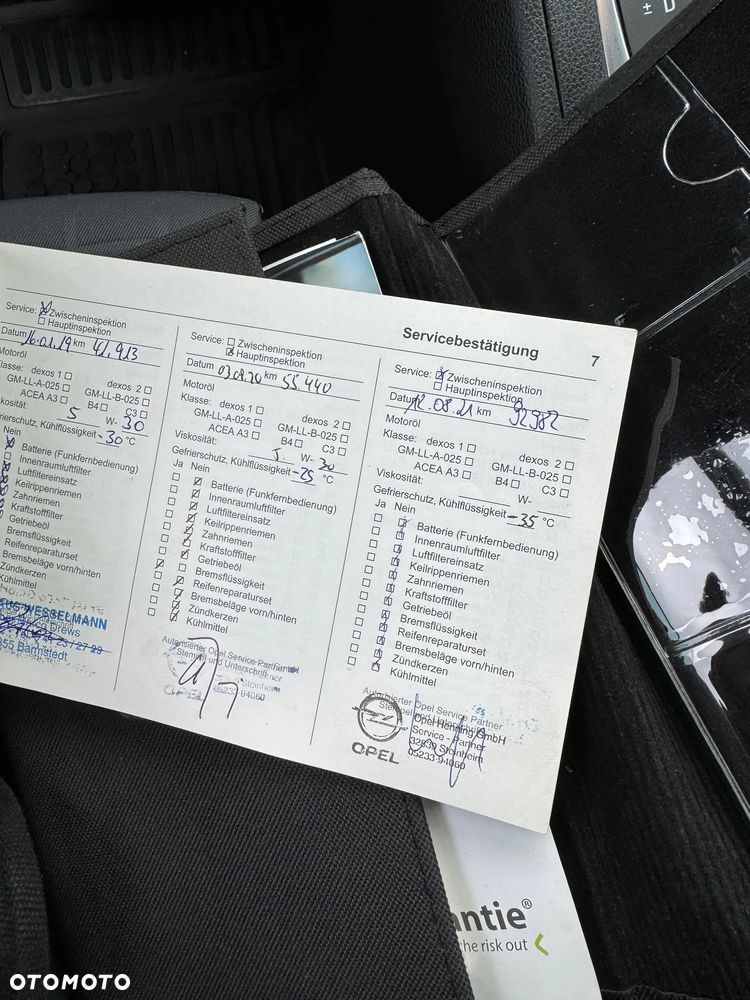 Servicebestätigung 7
Service: Zwischeninspektion
Hauptinspektion
Datum 16.01.19 km 41.913
Motoröl
Klasse: dexos 1 dexos 2
GM-LL-A-025 GM-LL-B-025
ACEA A3 B4 C3
5 W- 30
Gefrierschutz, Kühlflüssigkeit -30 °C
Nein
Batterie (Funkfernbedienung)
Innenraumluftfilter
Luftfiltereinsatz
Keilrippenriemen
Zahnriemen
Kraftstofffilter
Getriebeöl
Bremsflüssigkeit
Reifenreparaturset
Bremsbeläge vorn/hinten
Zündkerzen
Kühlmittel
WESSELMANN
Drews
Barmstedt
Service: Zwischeninspektion
Hauptinspektion
Datum 03.09.20 km 55 440
Motoröl
Klasse: dexos 1 dexos 2
GM-LL-A-025 GM-LL-B-025
ACEA A3 B4 C3
Viskosität: 5 W- 30
Gefrierschutz, Kühlflüssigkeit -25 °C
Ja Nein
Batterie (Funkfernbedienung)
Innenraumluftfilter
Luftfiltereinsatz
Keilrippenriemen
Zahnriemen
Kraftstofffilter
Getriebeöl
Bremsflüssigkeit
Reifenreparaturset
Bremsbeläge vorn/hinten
Zündkerzen
Kühlmittel
Autorisierter Opel Service Partner
Stempel und Unterschrift
Steinheim
OPEL 05233-94060
Service: Zwischeninspektion
Hauptinspektion
Datum 12.08.21 km 92982
Motoröl
Klasse: dexos 1 dexos 2
GM-LL-A-025 GM-LL-B-025
ACEA A3 B4 C3
Viskosität: W-
Gefrierschutz, Kühlflüssigkeit -35 °C
Ja Nein
Batterie (Funkfernbedienung)
Innenraumluftfilter
Luftfiltereinsatz
Keilrippenriemen
Zahnriemen
Kraftstofffilter
Getriebeöl
Bremsflüssigkeit
Reifenreparaturset
Bremsbeläge vorn/hinten
Zündkerzen
Kühlmittel
Autorisierter Opel Service Partner
Stempel und
Opel Henning GmbH
Service - Partner
32839 Steinheim
05233-94060
OPEL
antie®
the risk out
OTOMOTO